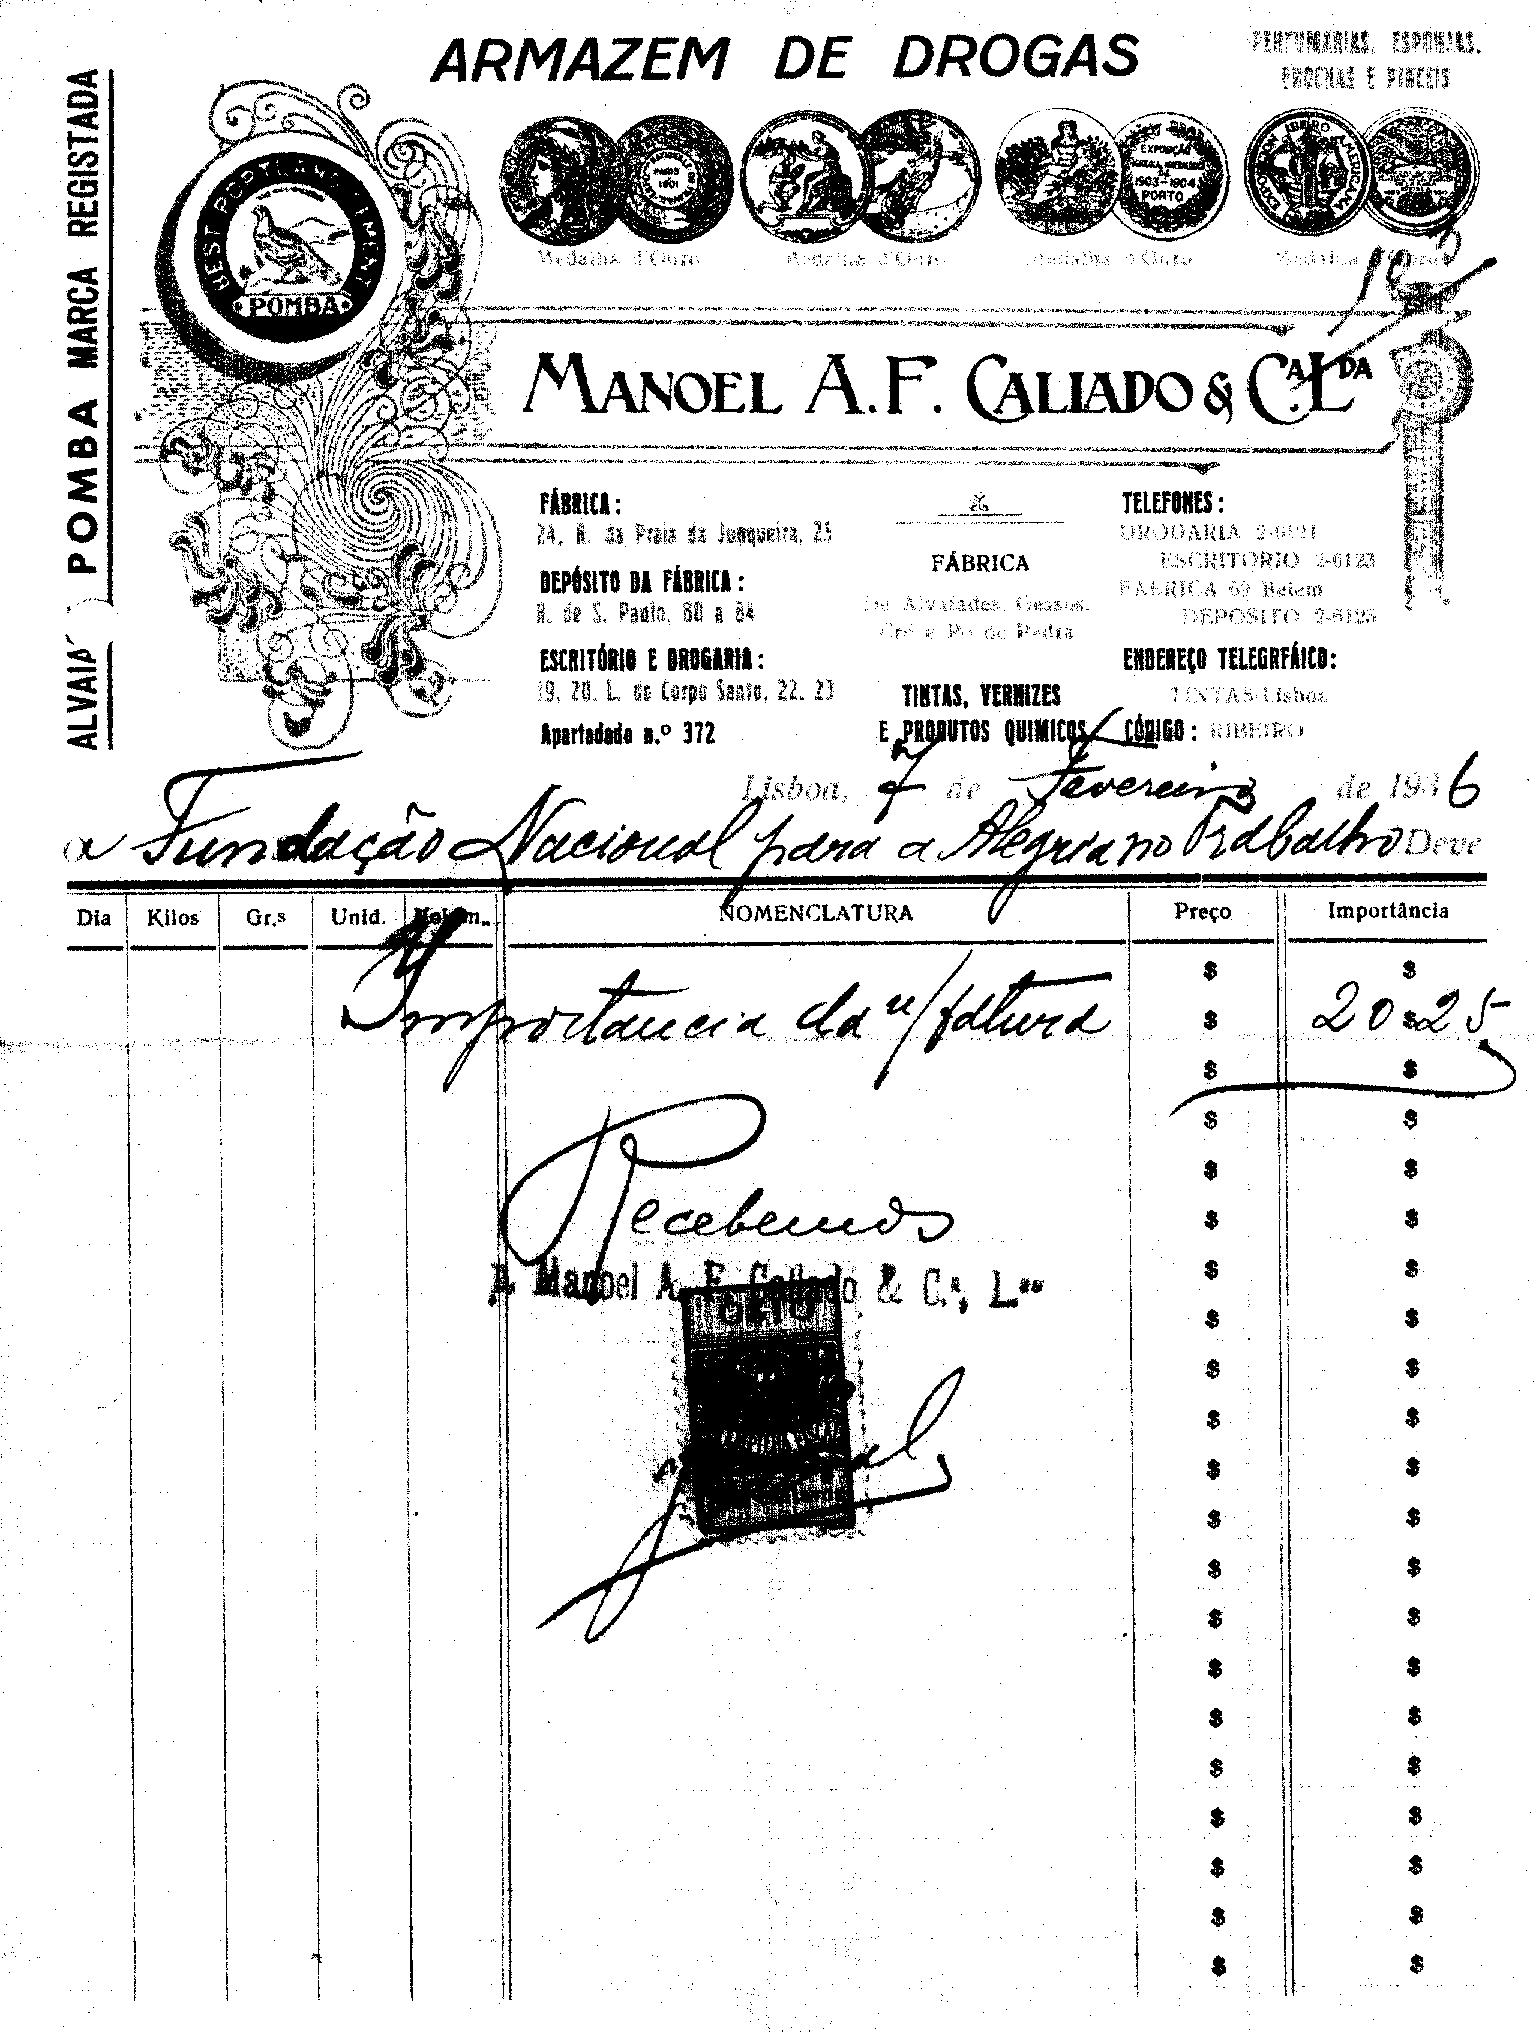 ARMAZEM DE DROGAS
PERFUMARIAS, ESPONJAS,
BROCHAS E PINCEIS
POMBA MARCA REGISTADA
POMBA
PARIS
1901
EXPOSIÇÃO
1903-1904
PORTO
Medalha d'Ouro
Medalha d'Ouro
Medalha d'Ouro
Medalha
MANOEL A. F. CALLADO & C.A L.DA
FÁBRICA:
24, R. da Praia da Junqueira, 25
DEPÓSITO DA FÁBRICA:
R. de S. Paulo, 80 a 84
ESCRITÓRIO E DROGARIA:
19, 20, L. do Corpo Santo, 22, 23
Apartadado n.º 372
FÁBRICA
De Alvaiades, Gessos,
Cré e Pó de Pedra
TINTAS, VERNIZES
E PRODUTOS QUIMICOS
TELEFONES:
DROGARIA 2-6121
ESCRITORIO 2-6123
FABRICA 69 Belem
DEPOSITO 2-6125
ENDEREÇO TELEGRFÁICO:
TINTAS-Lisboa
CÓDIGO: RIBEIRO
Lisboa, 7 de Fevereiro de 1936
a Fundação Nacional para a Alegria no Trabalho Deve
Dia Kilos Gr.s Unid. NOMENCLATURA Preço Importância
Importancia da n/ fatura 20$25
Recebemos
P. Manoel A. F. Callado & C.ª, L.da